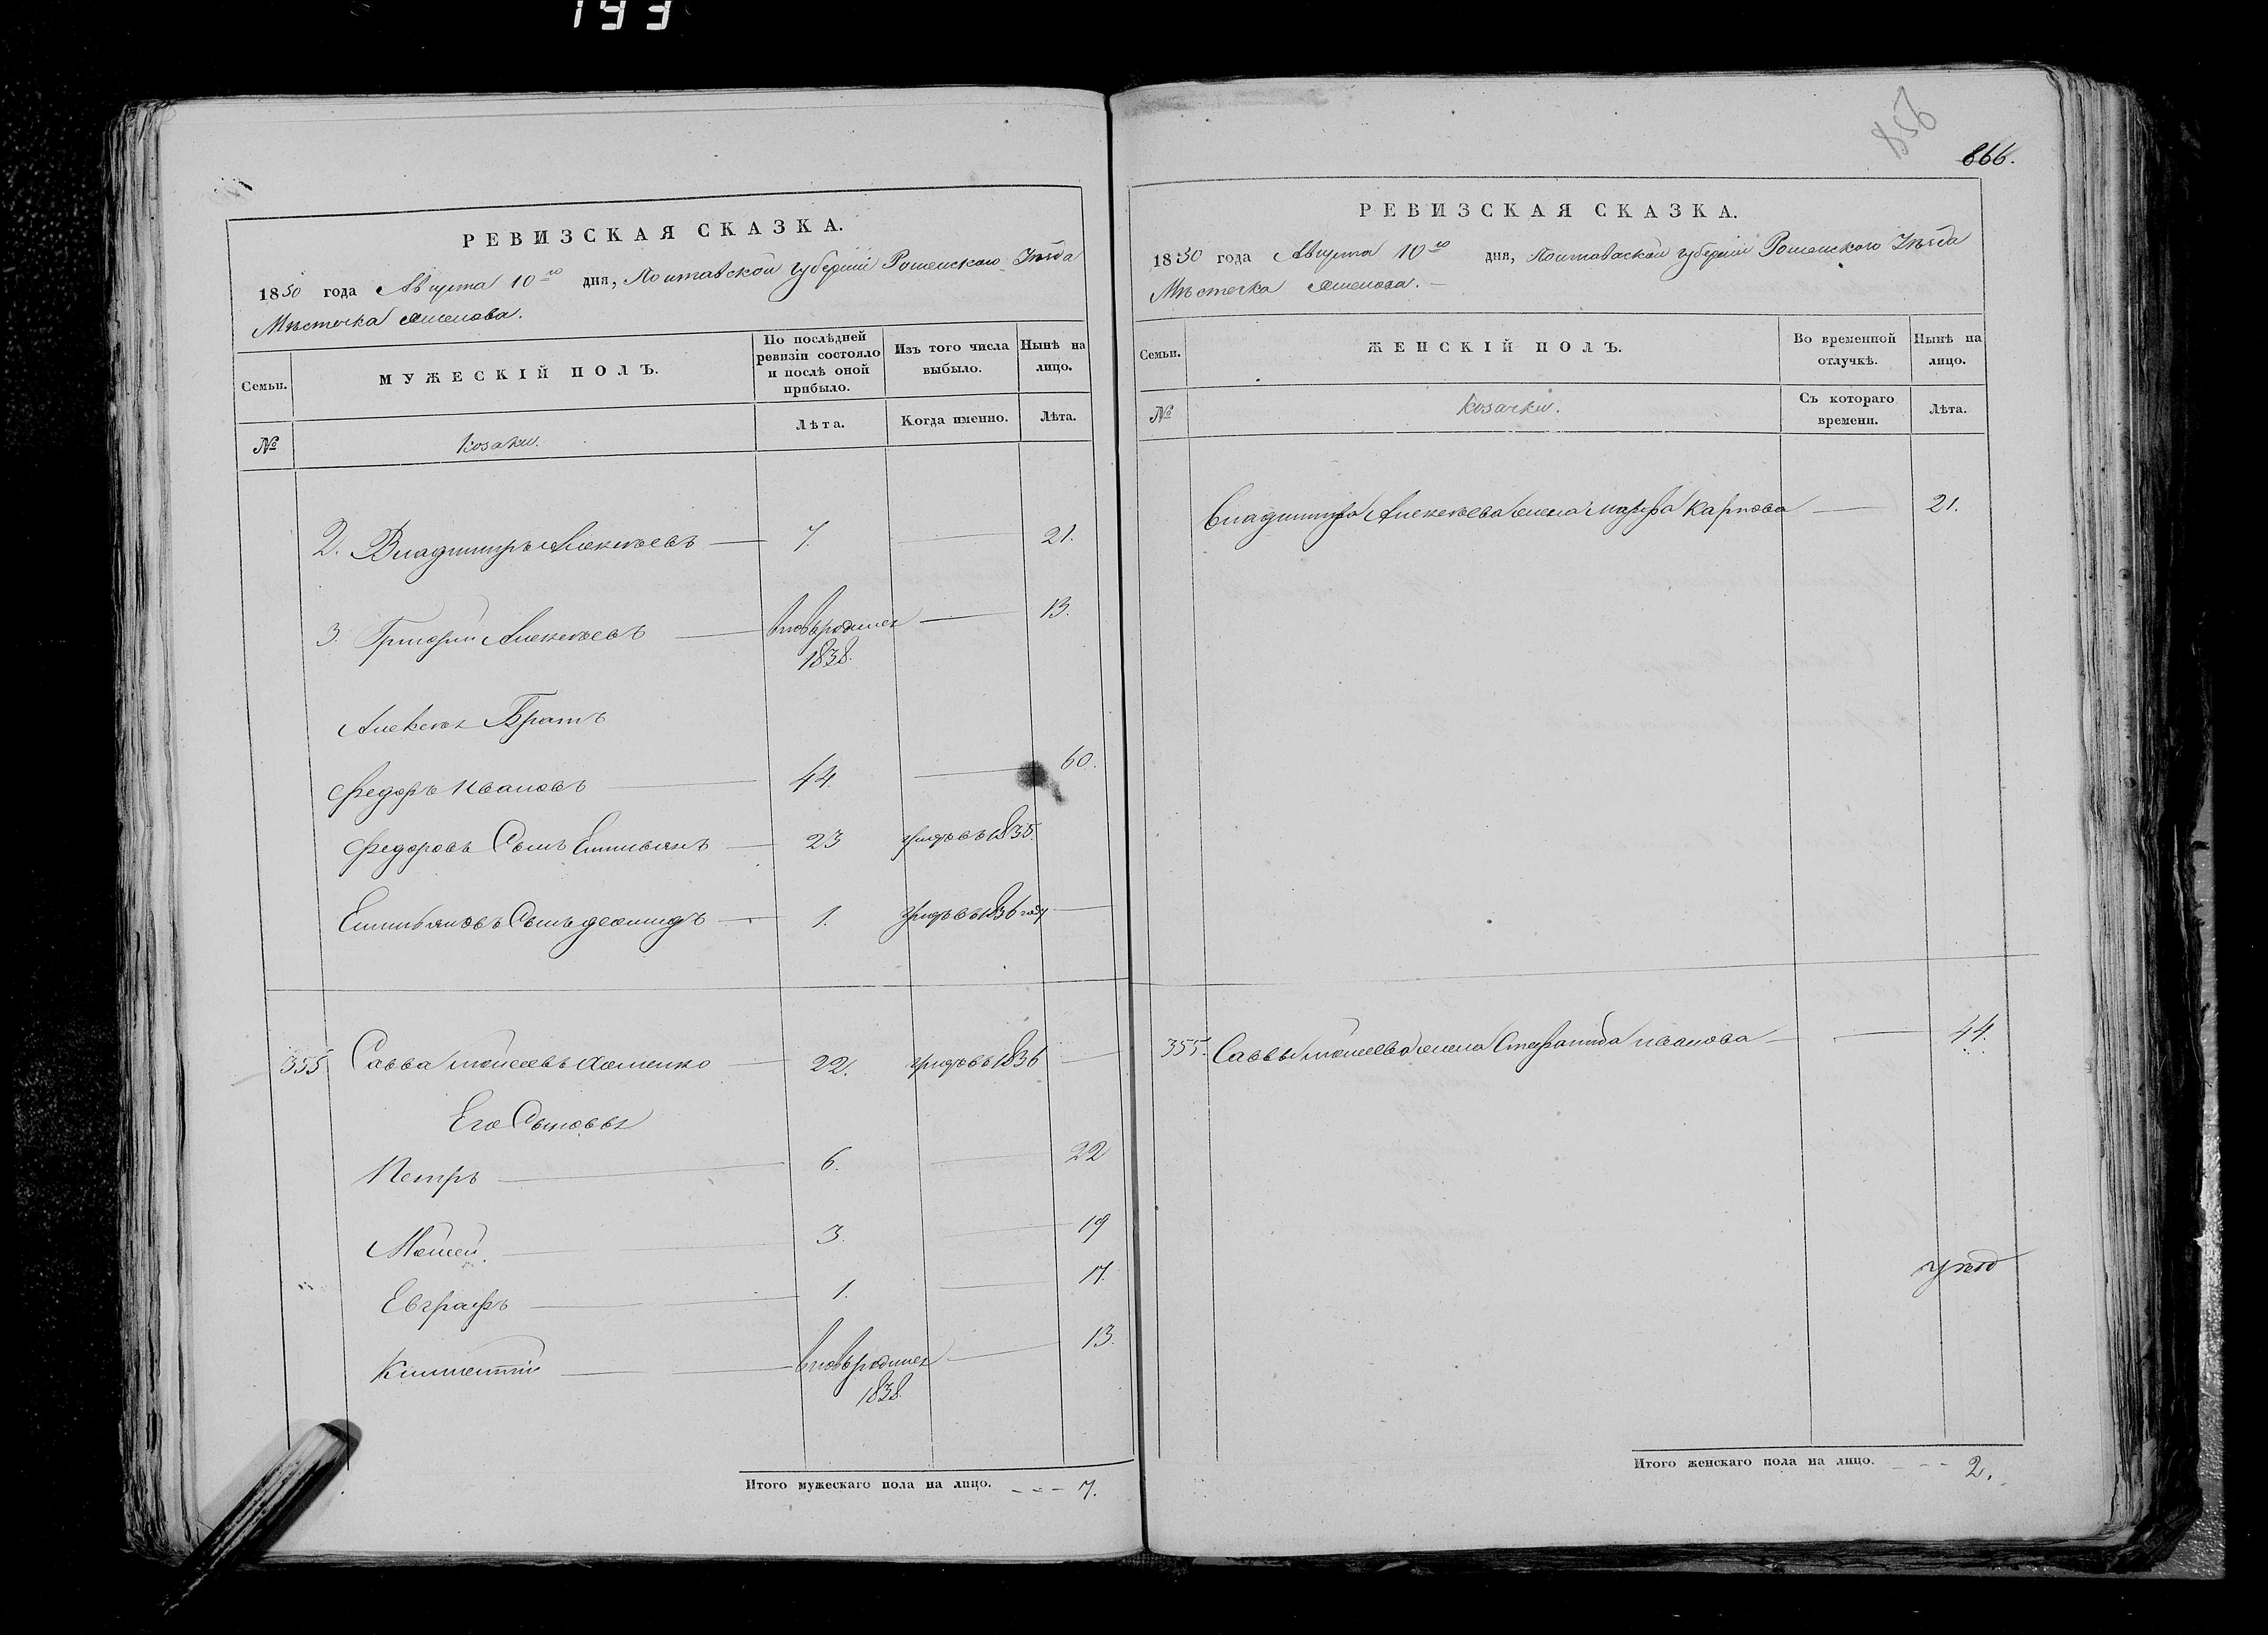 193
РЕВИЗСКАЯ СКАЗКА.
1850 года Августа 10го дня, Полтавской губернии Роменского Уезда
Местечка
Семьи.
МУЖЕСКІЙ ПОЛЪ.
По послѣдней ревизіи состояло и послѣ оной прибыло.
Изъ того числа выбыло.
Нынѣ на лицо.
№
козаки
Лѣта.
Когда именно.
Лѣта.
2. Владимиръ Алексѣевъ 7. 21.
3. Григорий Алексѣевъ вновьродился 13.
1838.
Алексѣя Братъ
Федоръ Ивановъ 44. 60.
Федоровъ Сынъ Емильянъ 23 1835.
Емильяновъ Сынъ 1. 1836 году
355 Савва Мойсеевъ 22. 1836
Его Сыновья
Петръ 6. 22
Мойсей 3. 19
Евграфъ 1. 17.
Климентий вновьродился 13.
1838
Итого мужескаго пола на лицо. 7.
856
866.
РЕВИЗСКАЯ СКАЗКА.
1850 года Августа 10го дня, Полтавской губернии Роменского Уезда
Мѣстечка
Семьи.
ЖЕНСКІЙ ПОЛЪ.
Во временной отлучкѣ.
Нынѣ на лицо.
№
козачки.
Съ котораго времени.
Лѣта.
Владимира Алексѣева жена Марфа Карпова 21.
355. Саввы Мойсеева жена Стефанида Иванова 44.
Итого женскаго пола на лицо. 2.